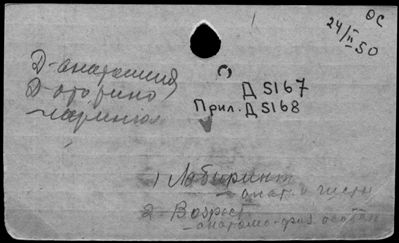 ОС
24/II 50
Д-анатомия
Д-оторино
ларингол
Д 5167
Прил. Д 5168
1 Лабиринт
анат. и гисто
2 Возраст
анатомо-физ. особен